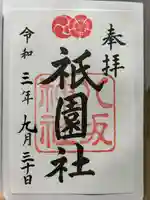 奉拝
八坂神社
祇園社
令和三年九月三十日